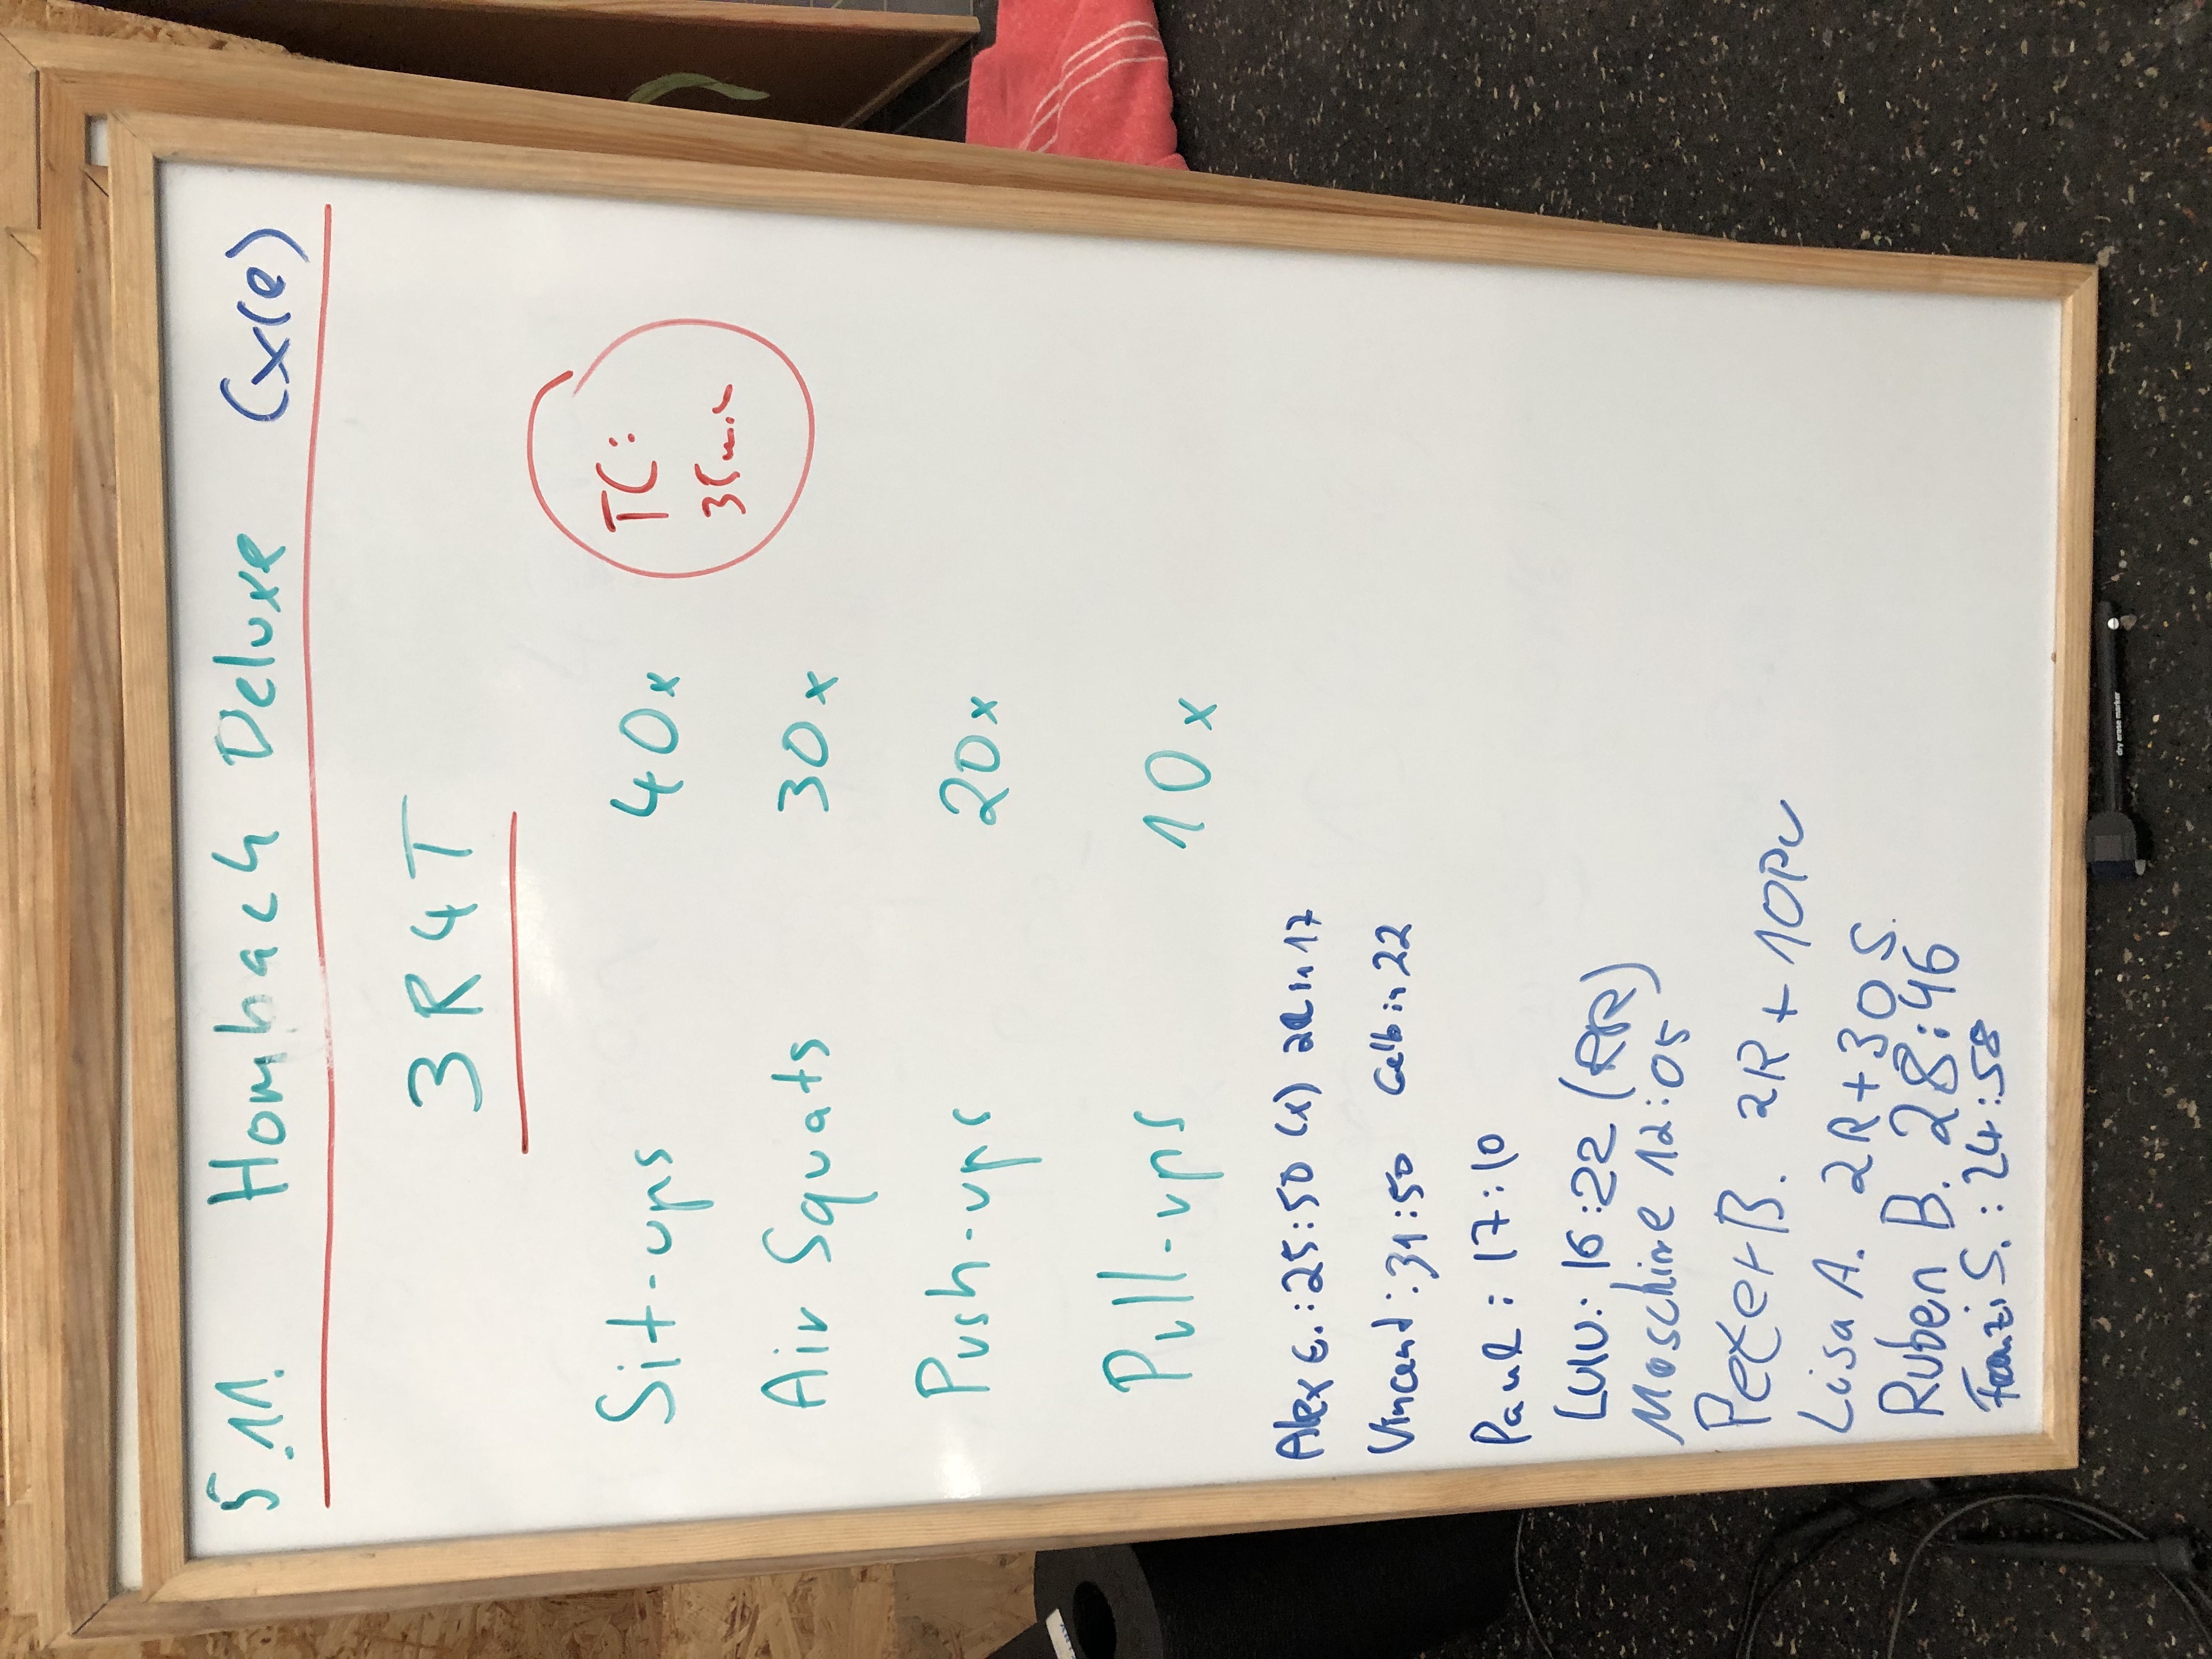 5.11. Hombach Deluxe (x(e)
3R4T
Sit-ups 40x
TC:
35min
Air Squats 30x
Push-ups 20x
Pull-ups 10x
Alex E.: 25:50 (x) 2R in 17
Vincent: 31:50 Gelb in 22
Paul: 17:10
Lulu: 16:22 (RR)
Maschine 12:05
Peter B. 2R + 10PU
Lisa A. 2R+30 S.
Ruben B. 28:46
Franzi S.: 24:58
dry erase marker